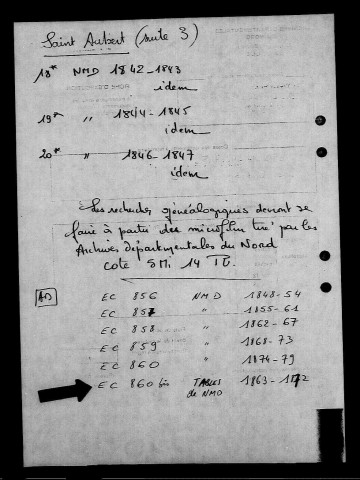 Saint Aubert (suite 3)
18* NMD 1842-1843
idem
19* " 1844-1845
idem
20* " 1846-1847
idem
Les recherches généalogiques devront se
faire à partir des microfilm tiré par les
Archives départementales du Nord
cote 5Mi 14 R.
AD EC 856 NMD 1848-54
EC 857 " 1855-61
EC 858 " 1862-67
EC 859 " 1868-73
EC 860 " 1874-79
EC 860 bis TABLES 1863-1872
de NMD